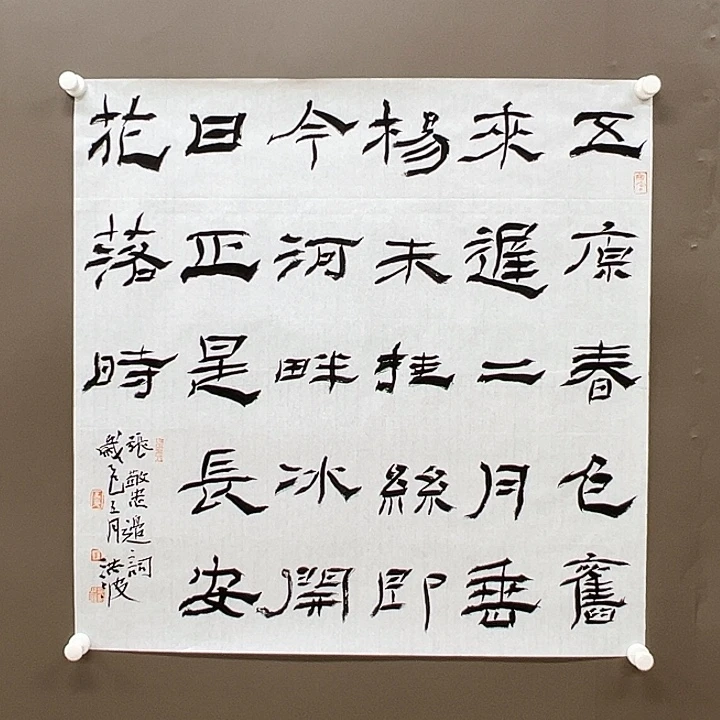 五原春色舊
來遲二月垂
楊未挂絲即
今河畔冰開
日正是長安
花落時
張敬忠邊詞
歲 三月 洪波